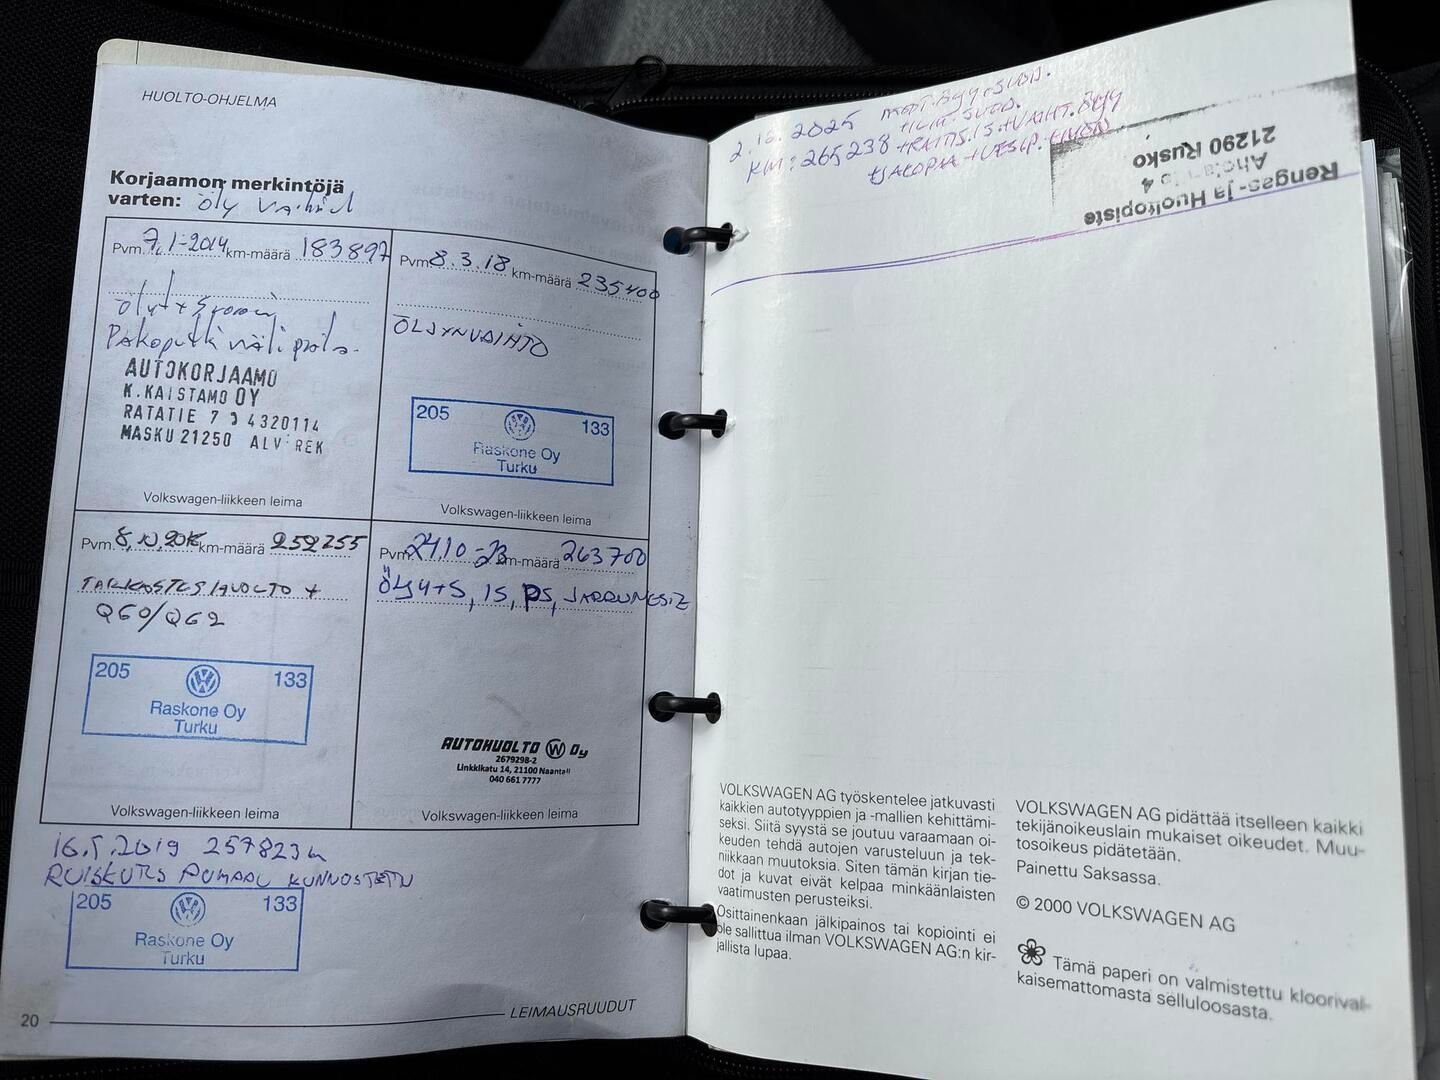 HUOLTO-OHJELMA
Korjaamon merkintöjä
varten: öly vaihdot
Pvm. 7.1-2014 km-määrä 183897
öljyt+
Pakoputki väli pala.
AUTOKORJAAMO
K.KAISTAMO OY
RATATIE 7 4320114
MASKU 21250 ALV REK
Volkswagen-liikkeen leima
Pvm. 8.3.18 km-määrä 235400
ÖLJYNVAIHTO
205 133
Raskone Oy
Turku
Volkswagen-liikkeen leima
Pvm. 8.10.2018 km-määrä 252255
TARKASTUS/HUOLTO +
QG0/QG2
205 133
Raskone Oy
Turku
Volkswagen-liikkeen leima
Pvm. 24.10-23 km-määrä 263700
Öljy+S, IS, PS, JARRUNESTE
AUTOHUOLTO W Oy
2679298-2
Linkkikatu 14, 21100 Naantali
040 661 7777
Volkswagen-liikkeen leima
16.5.2019 257823
RUISKUTUS PUMPPU KUNNOSTETTU
205 133
Raskone Oy
Turku
20 LEIMAUSRUUDUT
2.10.2025 MOOT.ÖLJY+SUOD.
KM: 265238 +RAITIS.IS+VAIHT.ÖLJY
+JAKOPÄÄ+VESIP.+HIHN
Rengas- ja Huoltopiste
21290 Rusko
VOLKSWAGEN AG työskentelee jatkuvasti
kaikkien autotyyppien ja -mallien kehittämi-
seksi. Siitä syystä se joutuu varaamaan oi-
keuden tehdä autojen varusteluun ja tek-
niikkaan muutoksia. Siten tämän kirjan tie-
dot ja kuvat eivät kelpaa minkäänlaisten
vaatimusten perusteiksi.
Osittainenkaan jälkipainos tai kopiointi ei
ole sallittua ilman VOLKSWAGEN AG:n kir-
jallista lupaa.
VOLKSWAGEN AG pidättää itselleen kaikki
tekijänoikeuslain mukaiset oikeudet. Muu-
tosoikeus pidätetään.
Painettu Saksassa.
© 2000 VOLKSWAGEN AG
Tämä paperi on valmistettu kloorival-
kaisemattomasta selluloosasta.